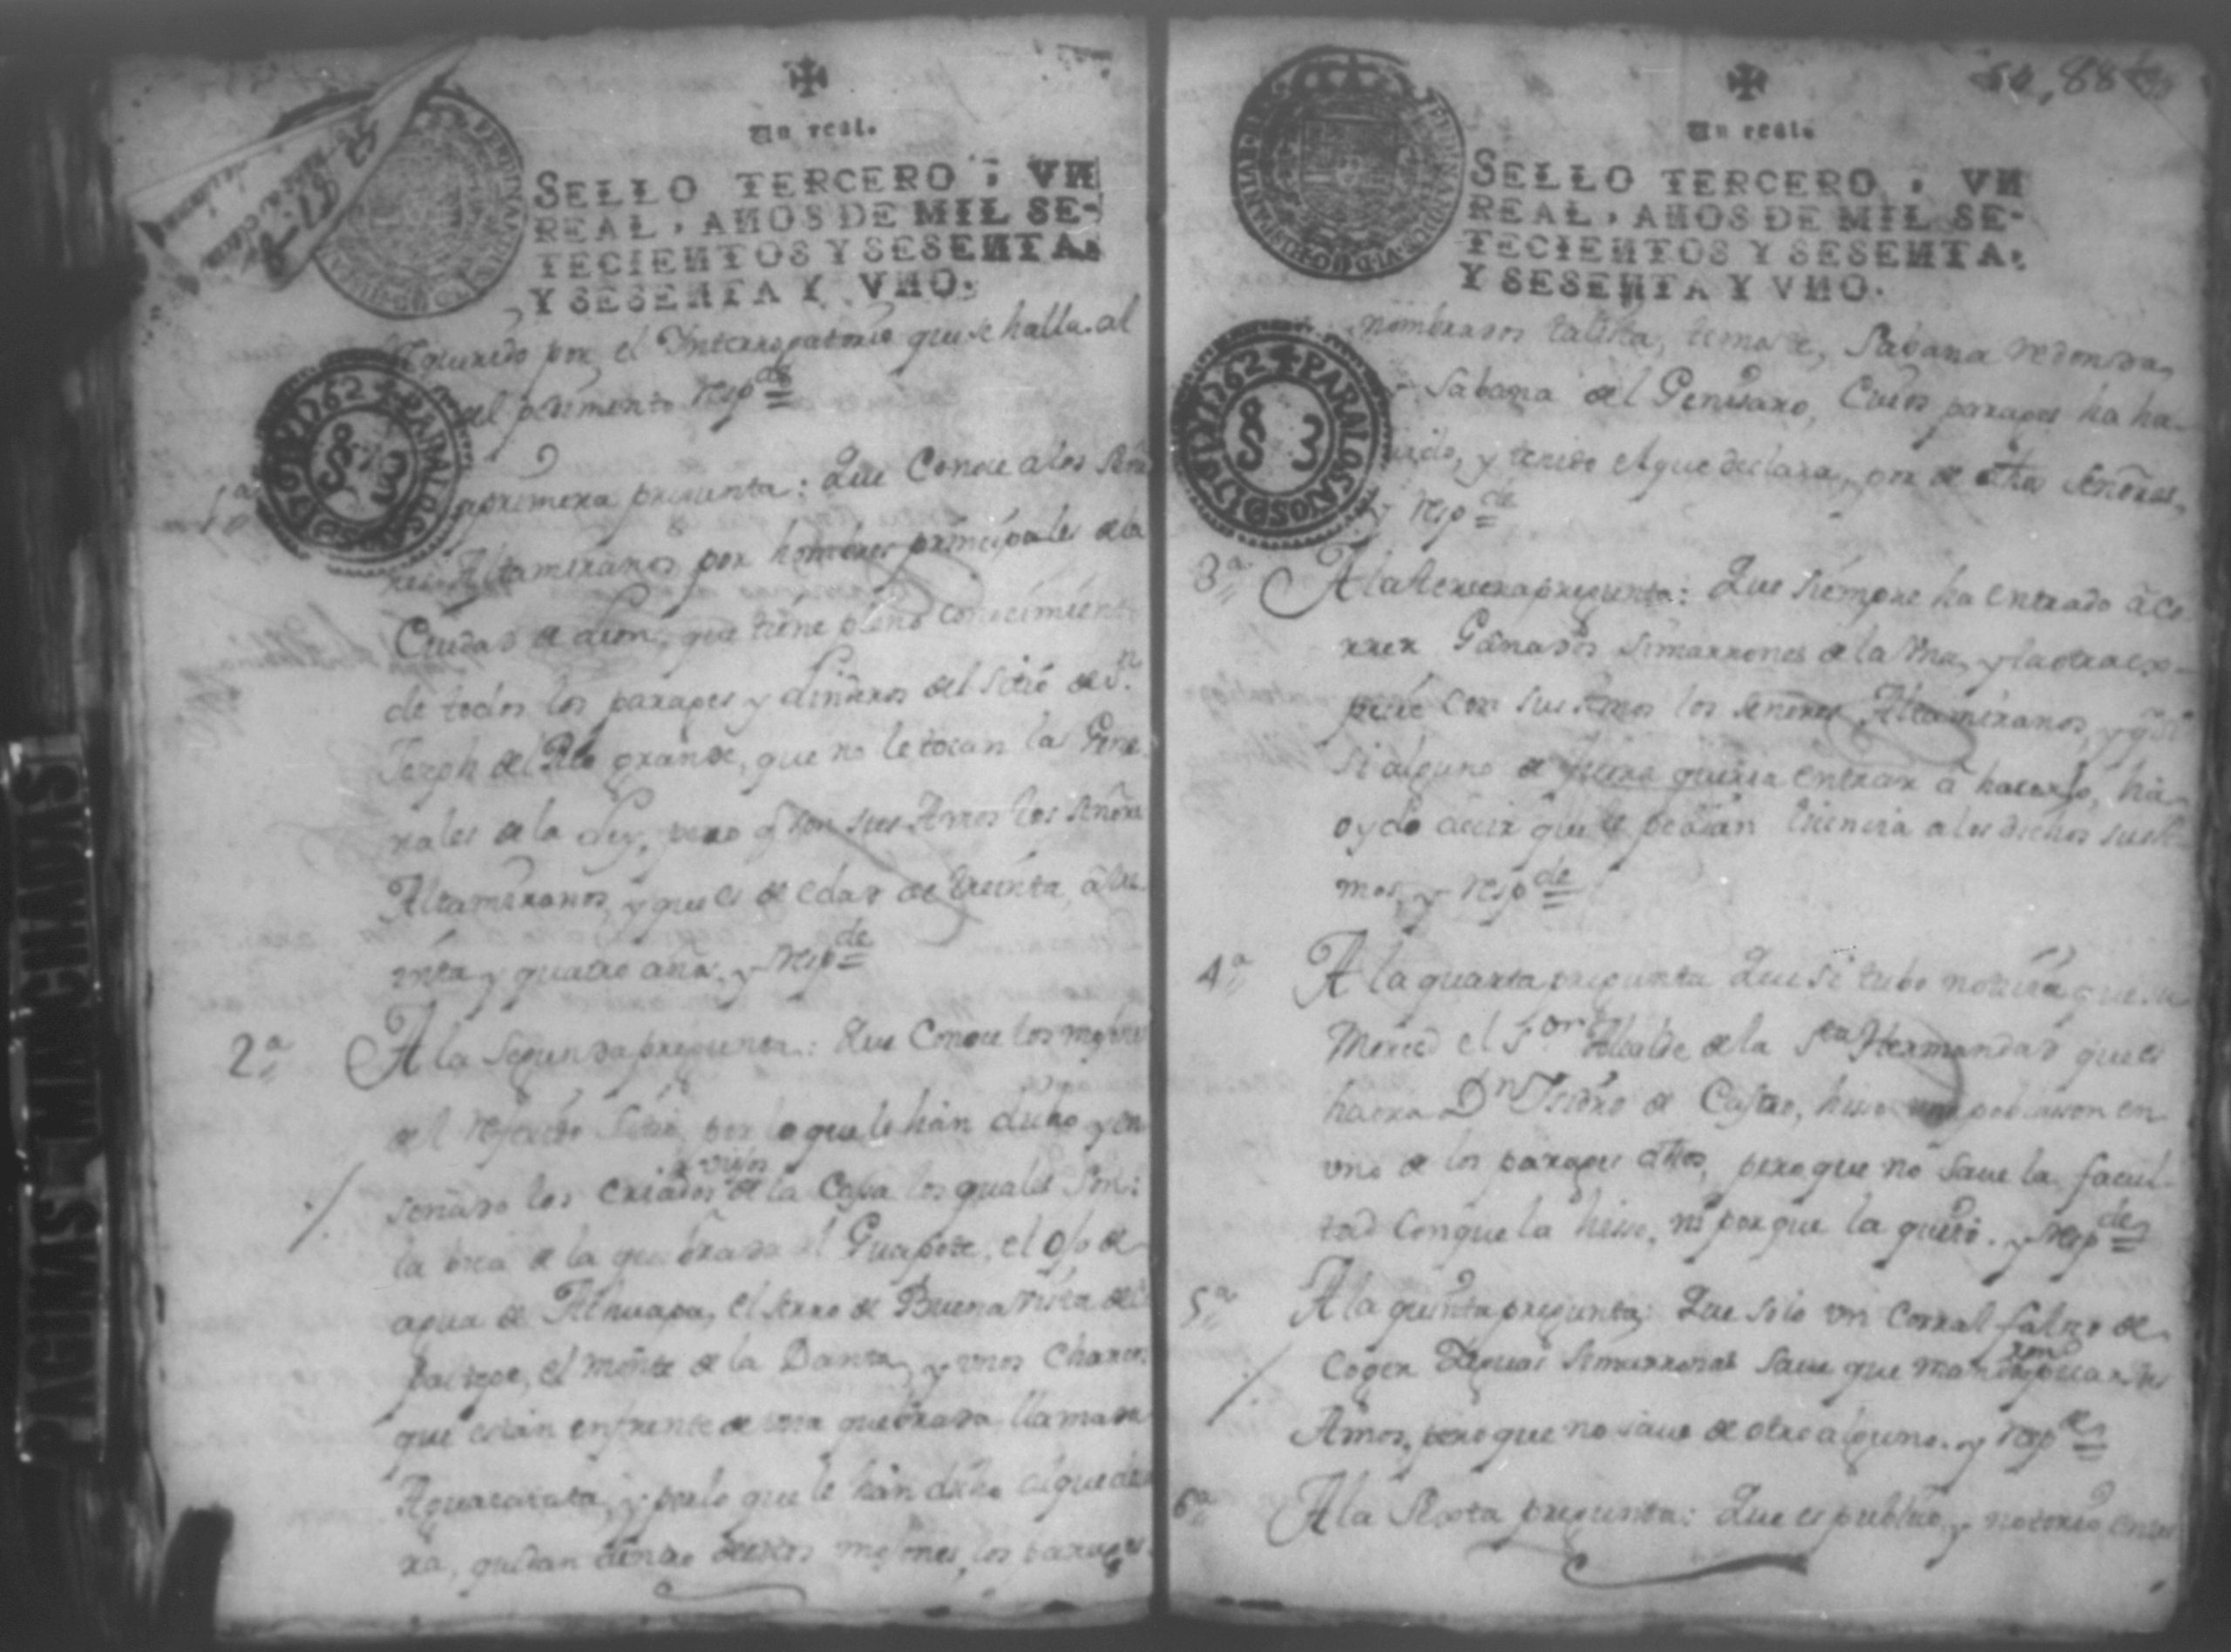 Un real.
SELLO TERCERO, VN
REAL, AÑOS DE MIL SE-
TECIENTOS Y SESENTA,
Y SESENTA Y VNO.
por el Interrogatorio que se halla al
del pedimento resp.de
1a
a primera pregunta: Que Conoce a los Señ
Altamiranos por hombres principales de la
Ciudad de Leon, que tiene pleno conocimiento
de todos los parages y linderos del sitio de S.n
Joseph del Rio grande, que no le tocan las Gene
rales de la Ley, pero q son sus Amos los Señores
Altamiranos, y que es de edad de treinta, â tre
inta y quatro años. y resp.de
2a A la Segunda pregunta: Que Conoce los mojones
del referido Sitio, por lo que le hân dicho y en
señado los Criados viejos de la Casa los quales Son:
la voca de la quebrada el Guapote, el Ojo de
agua de el serro de Buena Vista del
el monte de la Danta, y unos Charcos
que están enfrente de una quebrada llamada
y por lo que le hân dicho al que decla
ra, quedan dentro destos mojones, los parages
PAGINAS MANCHADAS
Un real.
88
SELLO TERCERO, VN
REAL, AÑOS DE MIL SE-
TECIENTOS Y SESENTA,
Y SESENTA Y VNO.
1761 Y 1762 PARA LOS AÑOS D
nombrados Sabana redonda,
Sabana del Genisaro, Cuios parages ha ha
vido, y tenido el que declara, por de dhos Señores,
y resp.de
3a A la tercera pregunta: Que siempre ha entrado â co
rrer Ganados simarrones de la una, y la otra es-
pecie con sus Amos los señores Altamiranos, y que
si alguno de fuera queria entrar â hacerlo, ha
oydo decir que le pedian licencia a los dichos sus A
mos, y resp.de
4a A la quarta pregunta Que si tubo noticia que su
Merced el S.or Alcalde de la S.ta Hermandad que es
haora D.n Isidro de Castro, hiso una poblacion en
uno de los parages dhos, pero que no save la facul-
tad con que la hiso, ni por que la quitó. y resp.de
5a A la quinta pregunta: Que solo un Corral falzo de
Coger Yeguas simarronas save que mandaron sus
Amos, pero que no save de otro alguno. y resp.de
6a A la Sexta pregunta: Que es publico, y notorio